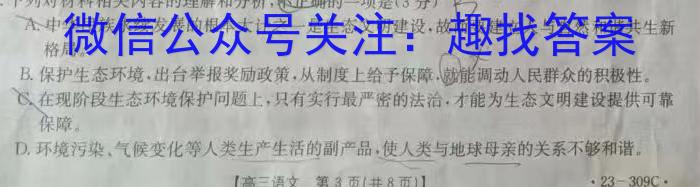 下列对材料相关内容的理解和分析,不正确的一项是(3分)
微信公众号关注:趣找答案
A. 中 发展的根本大计之一是生态文明建设,故 共生新
格局。
B. 保护生态环境,出台举报奖励政策,从制度上给予保障,就能调动人民群众的积极性。
C. 在现阶段生态环境保护问题上,只有实行最严密的法治,才能为生态文明建设提供可靠
保障。
D. 环境污染、气候变化等人类生产生活的副产品,使人类与地球母亲的关系不够和谐。
【高三语文 第3页(共8页)】 ·23-309C·